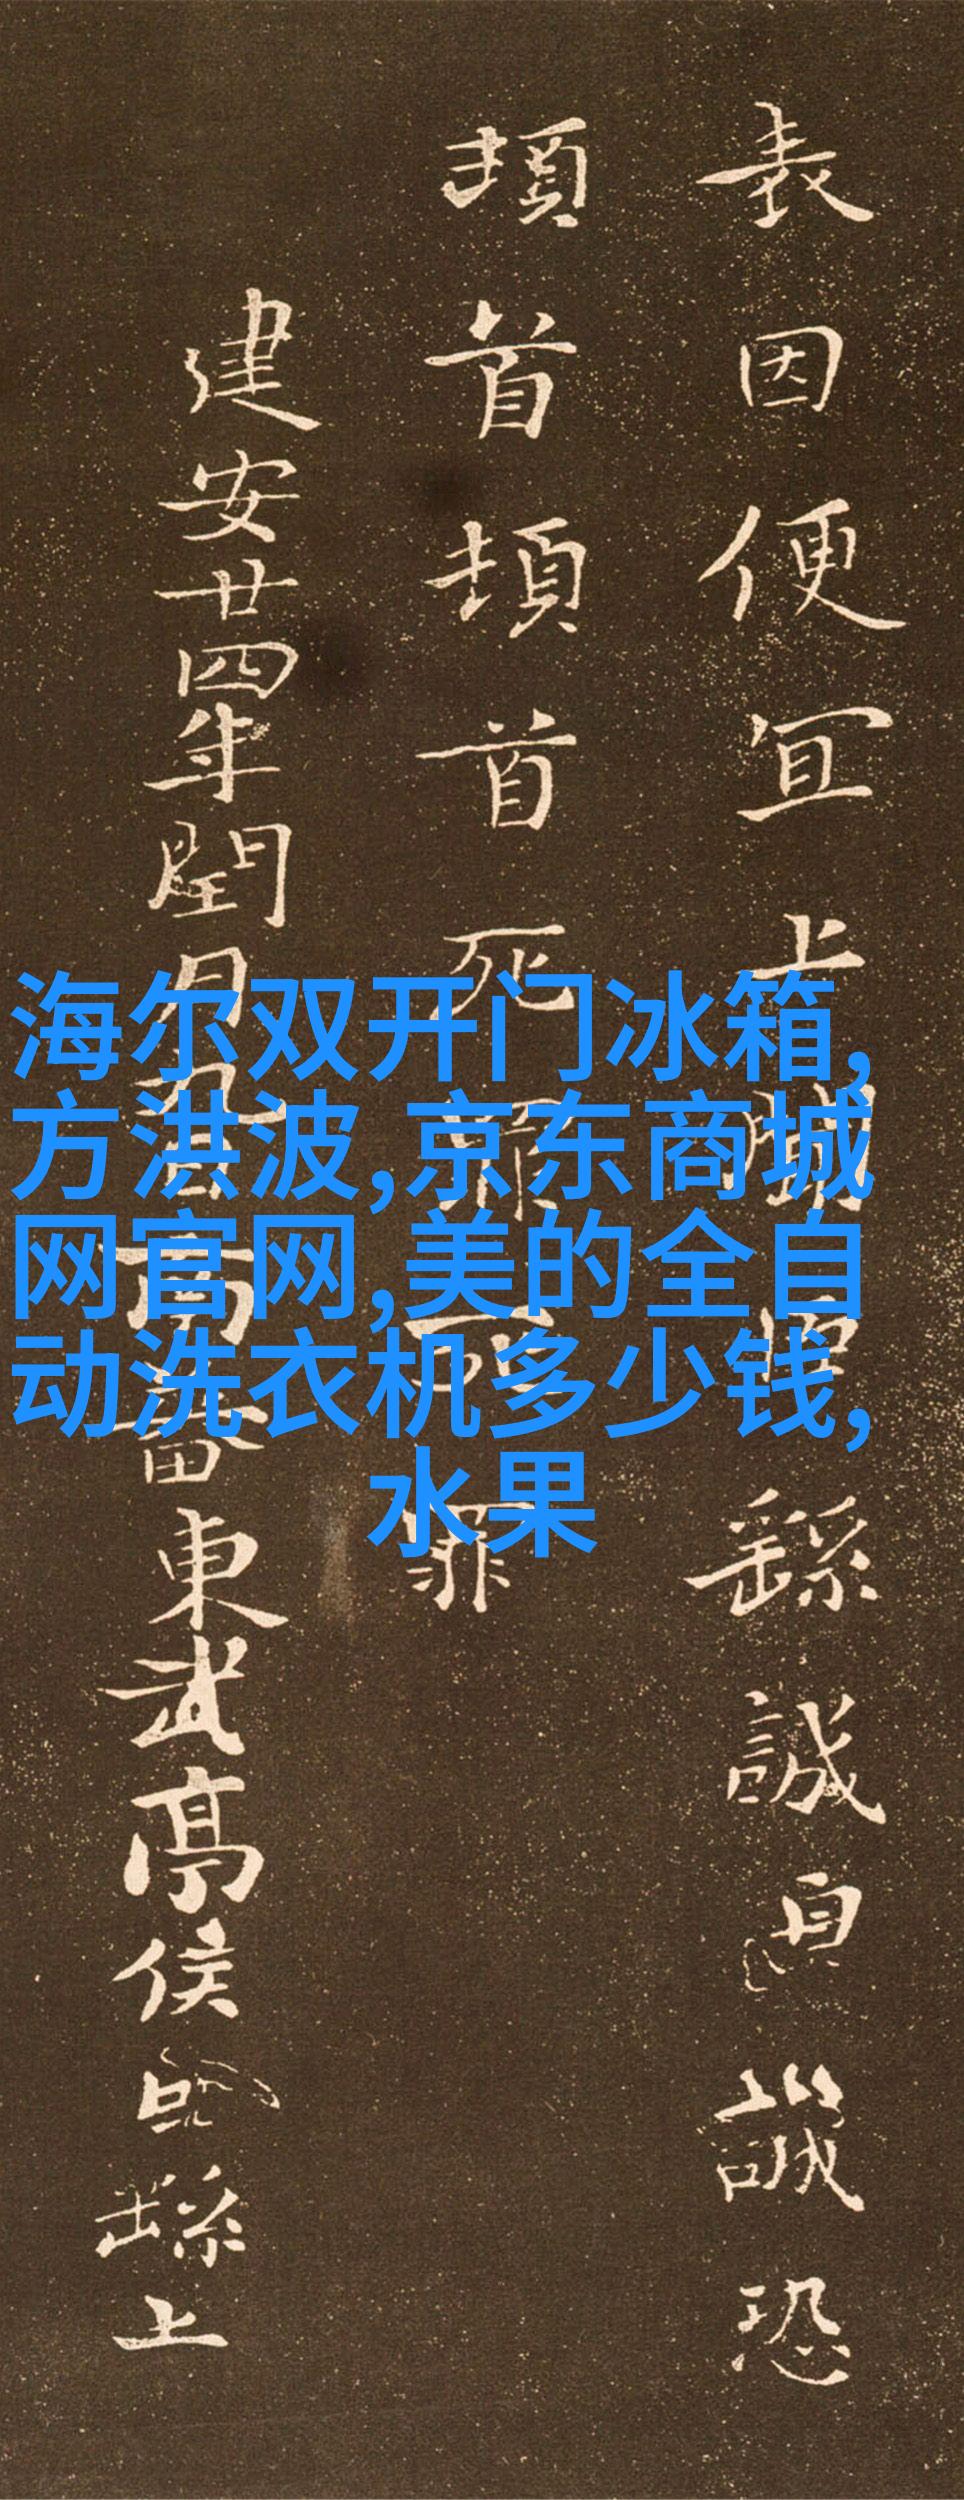 表因便宜上
繇誠皇誠恐
頓首頓首死罪
罪
建安廿四年閏月九日南蕃東武亭侯
繇上
海尔双开门冰箱,
方洪波,京东商城
网官网,美的全自
动洗衣机多少钱,
水果